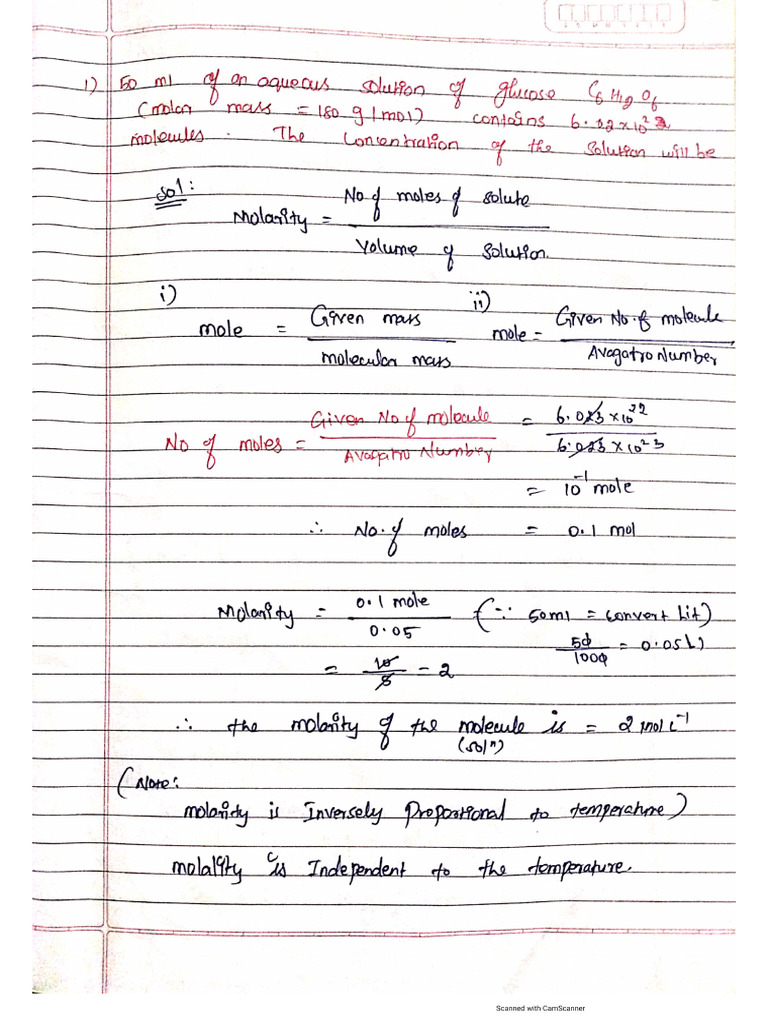 1) 50 ml of an aqueous solution of glucose C6H12O6
(molar mass = 180 g/mol) contains 6.02×10^22
molecules. The Concentration of the solution will be
Sol:
Molarity = No of moles of solute / Volume of solution.
i) mole = Given mass / molecular mass
ii) mole = Given No. of molecule / Avagatro Number
No of moles = Given No of molecule / Avagatro Number = 6.023×10^22 / 6.023×10^23
= 10^-1 mole
∴ No. of moles = 0.1 mol
Molarity = 0.1 mole / 0.05 (∵ 50ml = convert Lit)
50/1000 = 0.05L)
= 10/5 - 2
∴ the molarity of the molecule is = 2 mol L^-1
(solⁿ)
(Note:
molarity is Inversely Proportional to temperature)
molality is Independent to the temperature.
Scanned with CamScanner